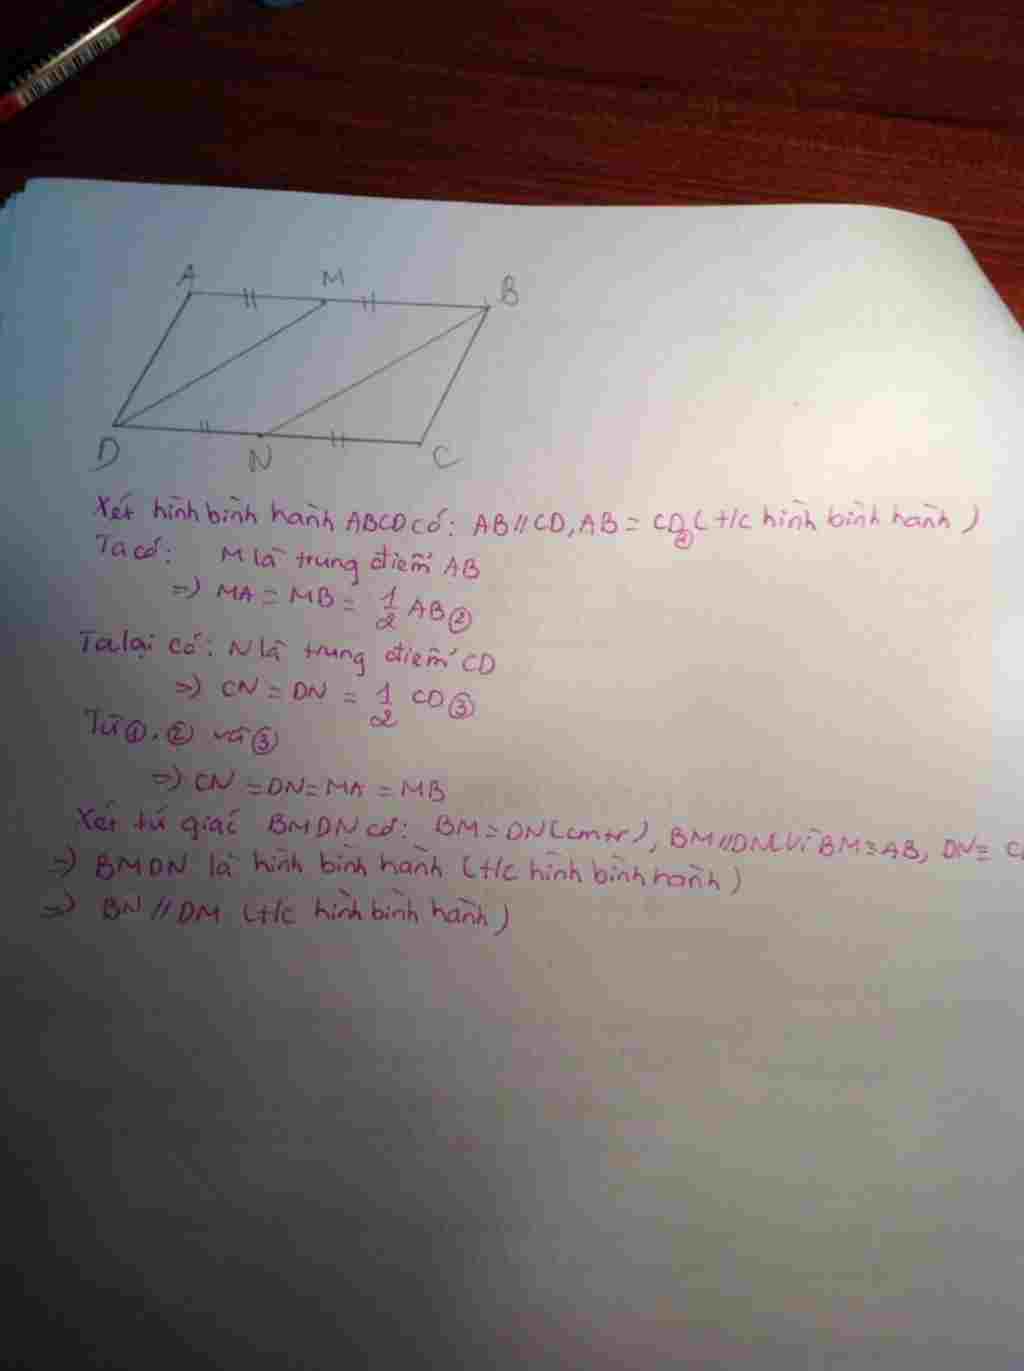 A M B
D N C
Xét hình bình hành ABCD có: AB // CD, AB = CD ① ( t/c hình bình hành )
Ta có: M là trung điểm AB
=> MA = MB = 1/2 AB ②
Ta lại có: N là trung điểm CD
=> CN = DN = 1/2 CD ③
Từ ①, ② và ③
=> CN = DN = MA = MB
Xét tứ giác BMDN có: BM = DN (cmtr), BM // DN (vì BM ≡ AB, DN ≡ C
=> BMDN là hình bình hành (t/c hình bình hành)
=> BN // DM (t/c hình bình hành)